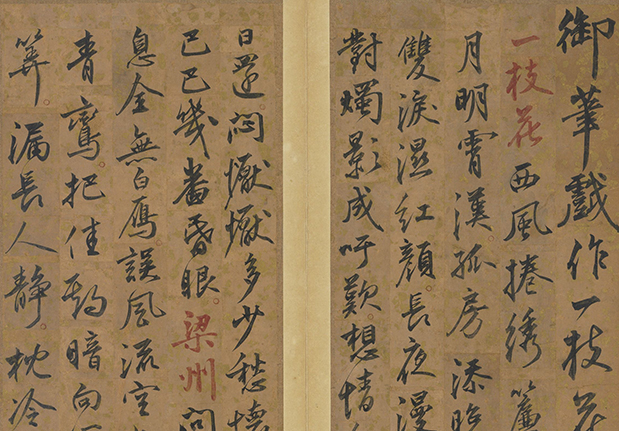 御筆戲作一枝花
一枝花西風捲綉簾
月明霄漢孤房添
雙淚濕紅顏長夜漫
對燭影成吁歎想情
日遲悶懨懨多少愁
巴巴幾番昏眼梁州問
息全無白雁誤風流空
青鸞把佳期暗向
籌漏長人靜枕冷